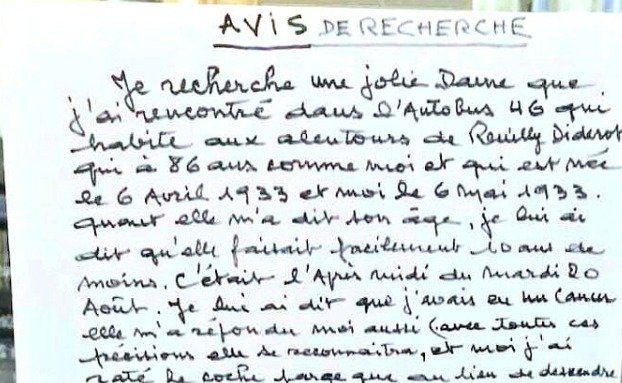 AVIS DE RECHERCHE
Je recherche une jolie Dame que
j'ai rencontré dans l'Autobus 46 qui
habite aux alentours de Reuilly Diderot
qui à 86 ans comme moi et qui est née
le 6 Avril 1933 et moi le 6 Mai 1933.
quant elle m'a dit son âge, je lui ai
dit qu'elle faisait facilement 10 ans de
moins. C'était l'Après midi du Mardi 20
Août. Je lui ai dit que j'avais eu un Cancer
elle m'a répondu moi aussi (avec toutes ces
précisions elle se reconnaitra, et moi j'ai
raté le coche parce que au lieu de descendre